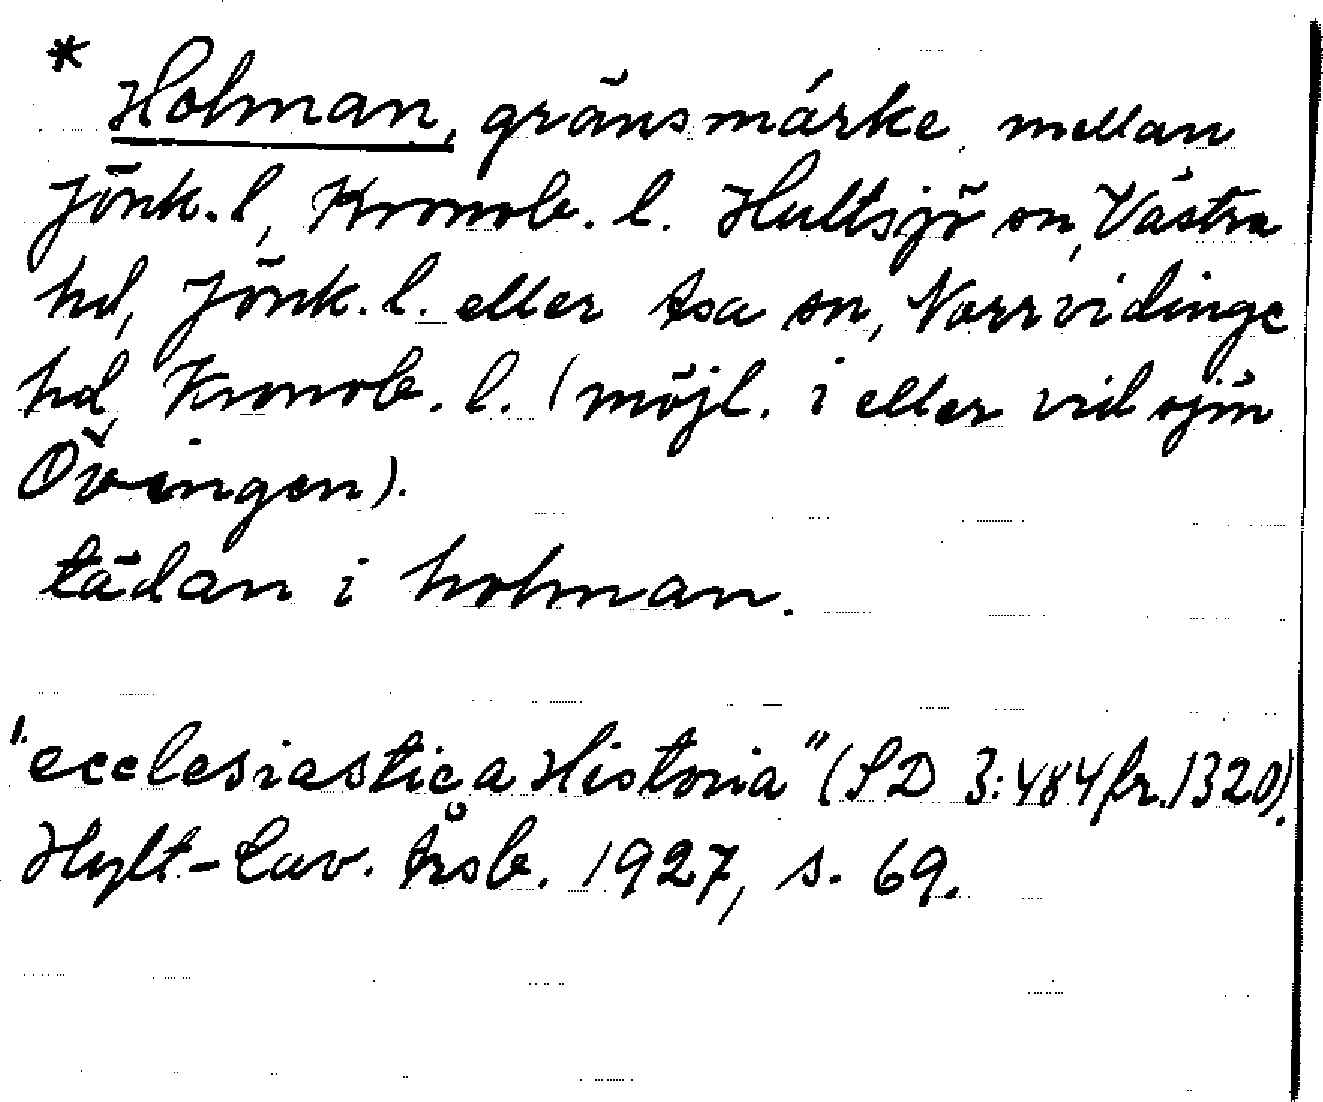 * Holman, gränsmärke mellan
Jönk. l, Kronob. l. Hultsjö sn, Västra
hd, Jönk. l. eller Asa sn, Norrvidinge
hd, Kronob. l. (möjl. i eller vid sjön
Övingen).
tädan i holman.
"ecclesiastica Historia" (SD 3:484 fr. 1320).
Hylt-Cav. Årsb. 1927, s. 69.